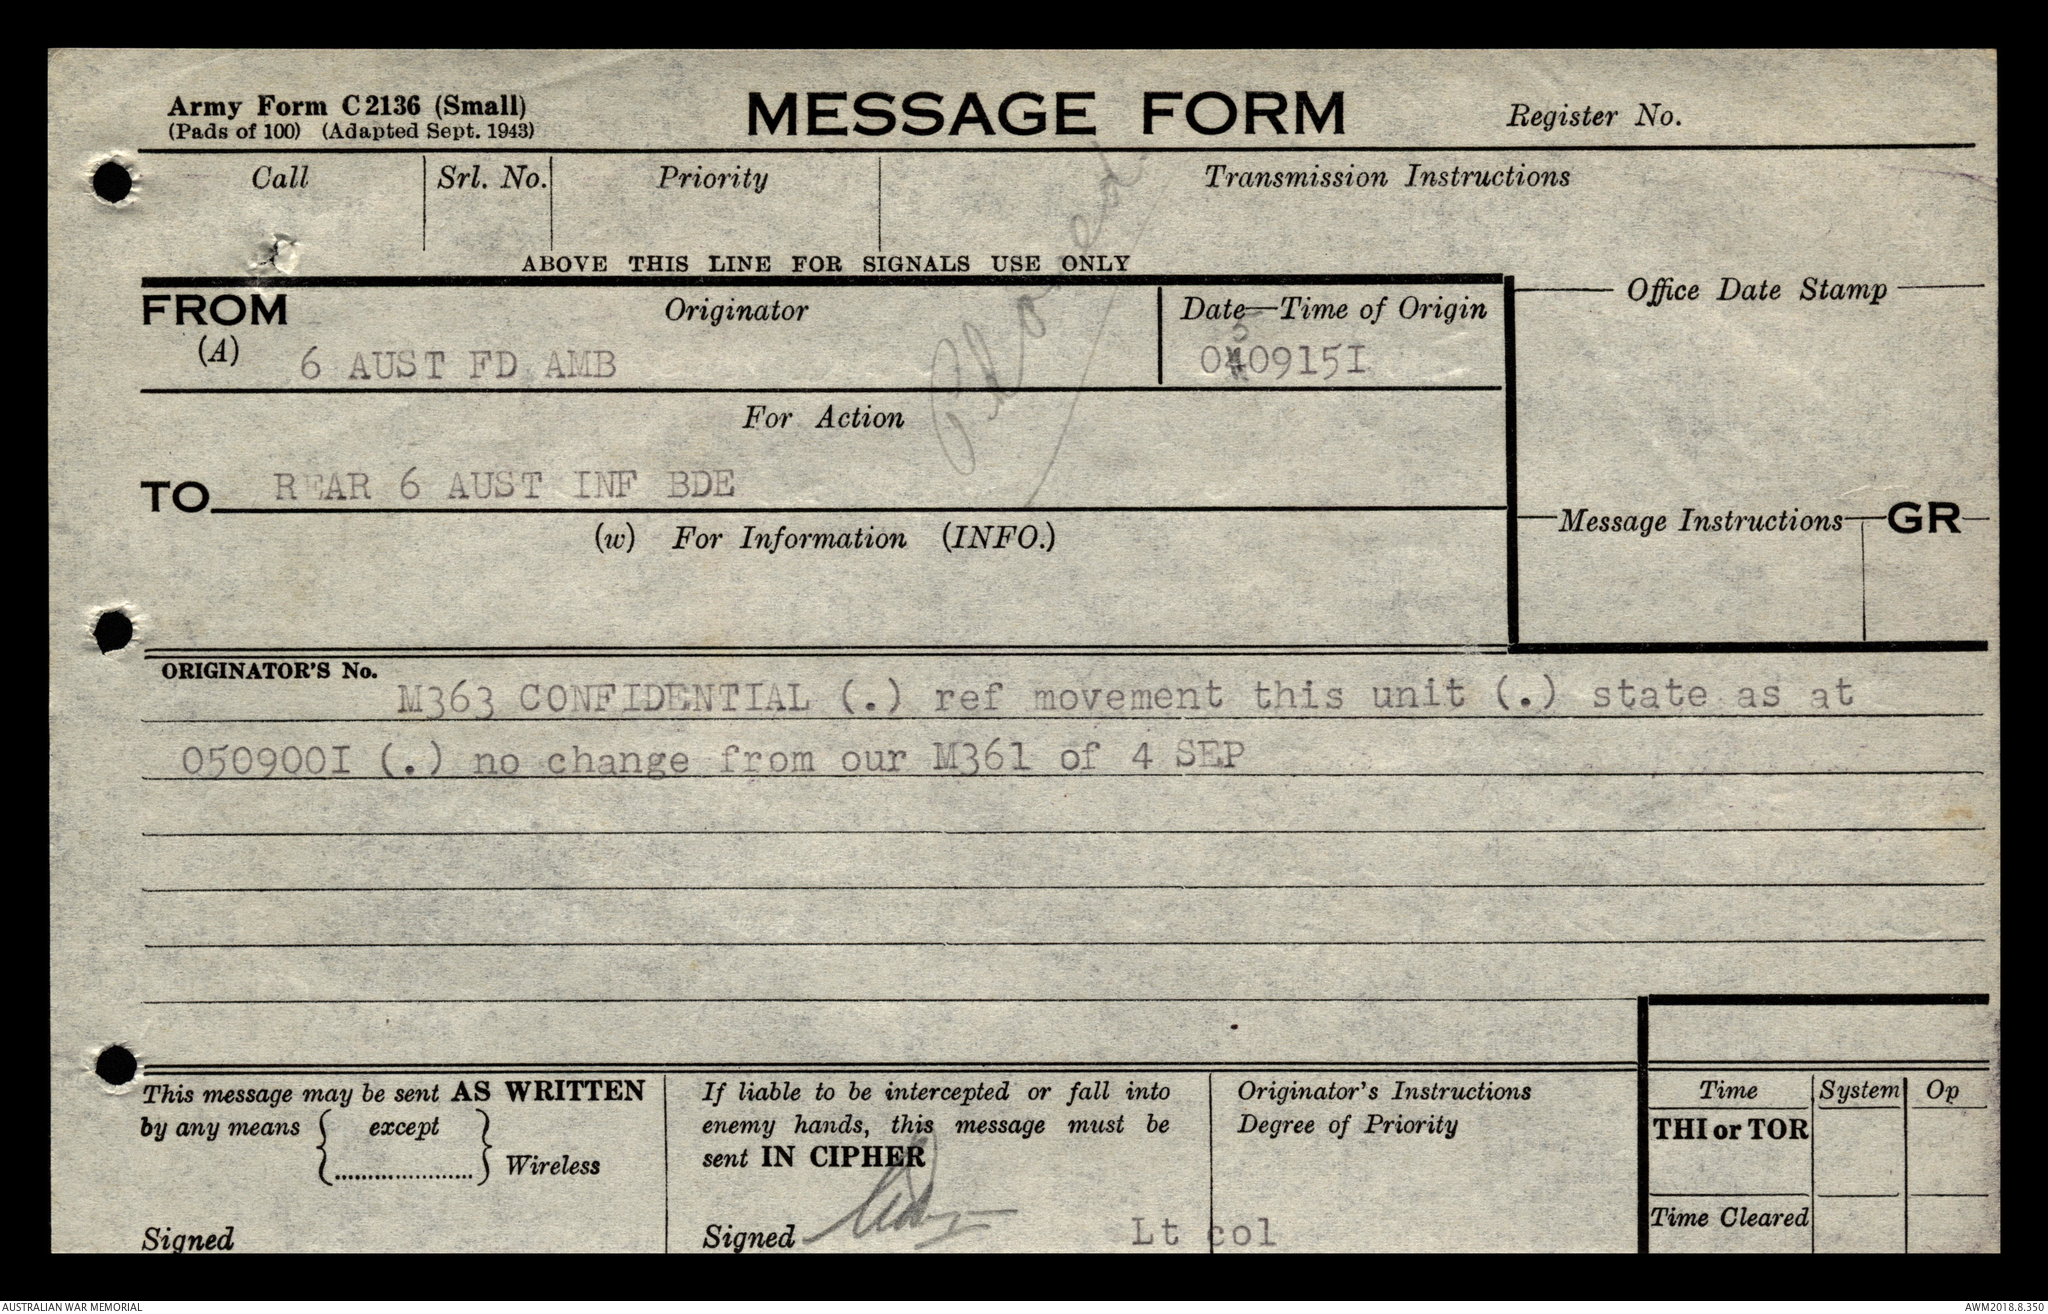 Army Form C2136 (Small)
(Pads of 100) (Adapted Sept. 1943)
MESSAGE FORM
Register No.
Call
Srl. No.
Priority
Transmission Instructions
ABOVE THIS LINE FOR SIGNALS USE ONLY
FROM
(A)
Originator
6 AUST FD AMB
Date—Time of Origin
5
040915I
Office Date Stamp
For Action
TO
REAR 6 AUST INF BDE
(w) For Information (INFO.)
Message Instructions
GR
ORIGINATOR'S No.
M363 CONFIDENTIAL (.) ref movement this unit (.) state as at
050900I (.) no change from our M361 of 4 SEP
This message may be sent AS WRITTEN
by any means { except
..................... } Wireless
Signed
If liable to be intercepted or fall into
enemy hands, this message must be
sent IN CIPHER
Signed
Lt col
Originator's Instructions
Degree of Priority
Time
System
Op
THI or TOR
Time Cleared
AUSTRALIAN WAR MEMORIAL
AWM2018.8.350